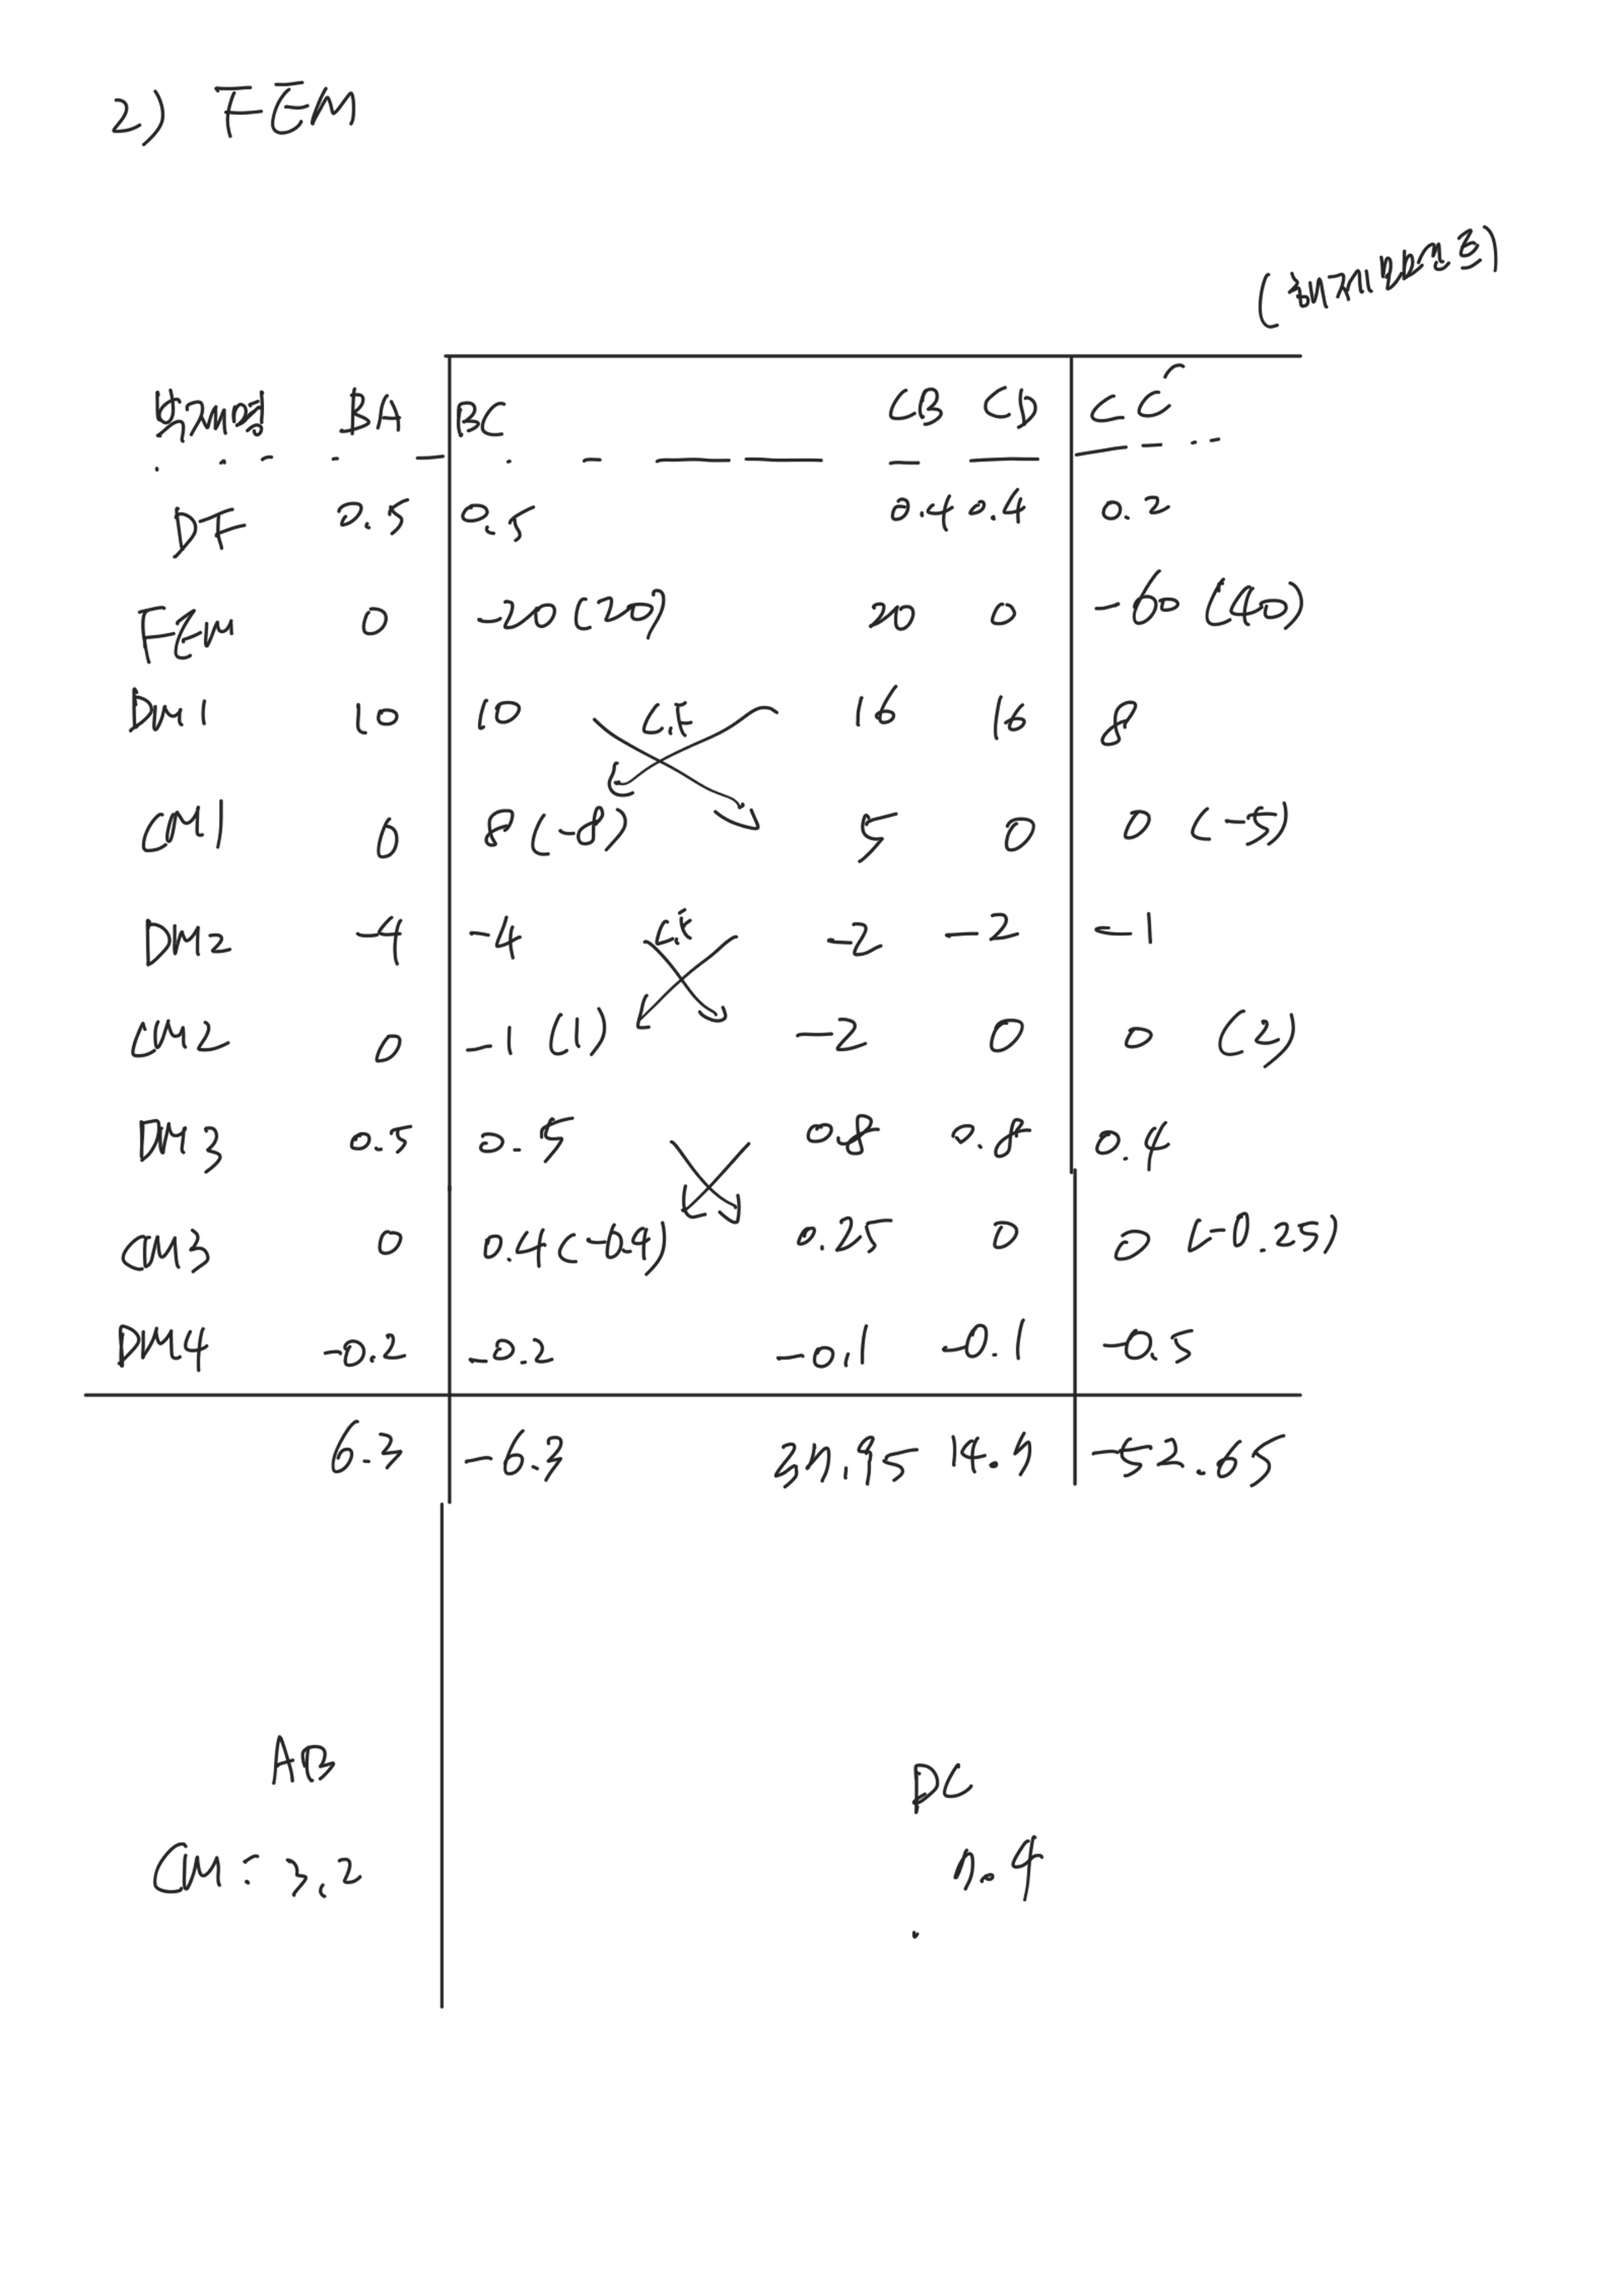 2) FEM
BA BC CB CD CC'
DF 0.5 0.5 0.4 0.4 0.2
FEM 0 -20 (20) 20 0 -60 (40)
DM1 10 10 16 16 8
CM1 0 8 (-8) 5 0 0 (-5)
DM2 -4 -4 -2 -2 -1
CM2 0 -1 (1) -2 0 0 (2)
DM3 0.5 0.5 0.8 0.8 0.4
CM3 0 0.4 (-0.4) 0.25 0 0 (-0.25)
DM4 -0.2 -0.2 -0.1 -0.1 -0.5
6.3 -6.3 -52.65
AB DC
CM = 3.2